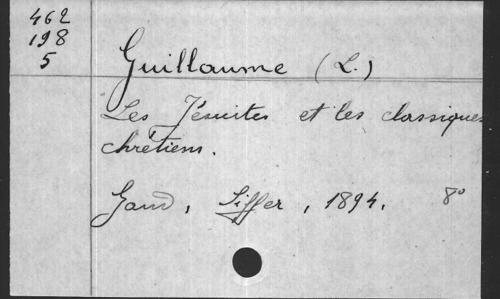 462
198
5
Guillaume (L.)
Les Jésuites et les classiques
chrétiens.
Gand, Siffer, 1894. 8°